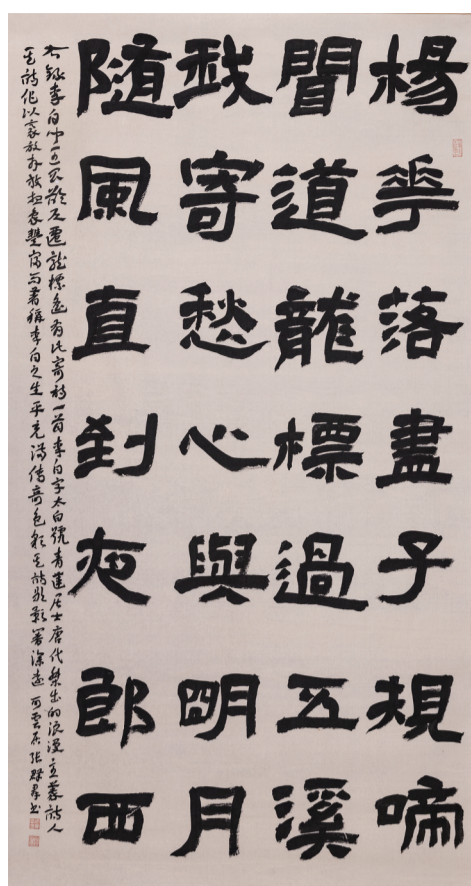 楊華落盡子規啼
聞道龍標過五溪
我寄愁心與明月
隨風直到夜郎西
右錄李白聞王昌齡左遷龍標遙有此寄詩一首李白字太白號青蓮居士唐代傑出的浪漫主義詩人
其詩作以豪放奔放想象豐富而著稱李白之生平充滿傳奇色彩其詩歌影響深遠 雲居張 書